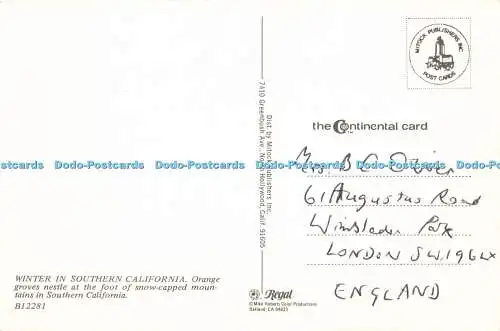 MITOCK PUBLISHERS INC.
POST CARDS
the Continental card
Dist. by Mitock Publishers Inc.
7410 Greenbush Ave., North Hollywood, Calif. 91605
Mrs. B C
61 Augustus Road
Wimbledon Park
LONDON SW19 6LX
ENGLAND
Dodo-Postcards Dodo-Postcards Dodo-Postcards Dodo-Postcards Dodo-Postcards
WINTER IN SOUTHERN CALIFORNIA. Orange
groves nestle at the foot of snow-capped moun-
tains in Southern California.
B12281
Regal
© Mike Roberts Color Productions
Oakland, CA 94623